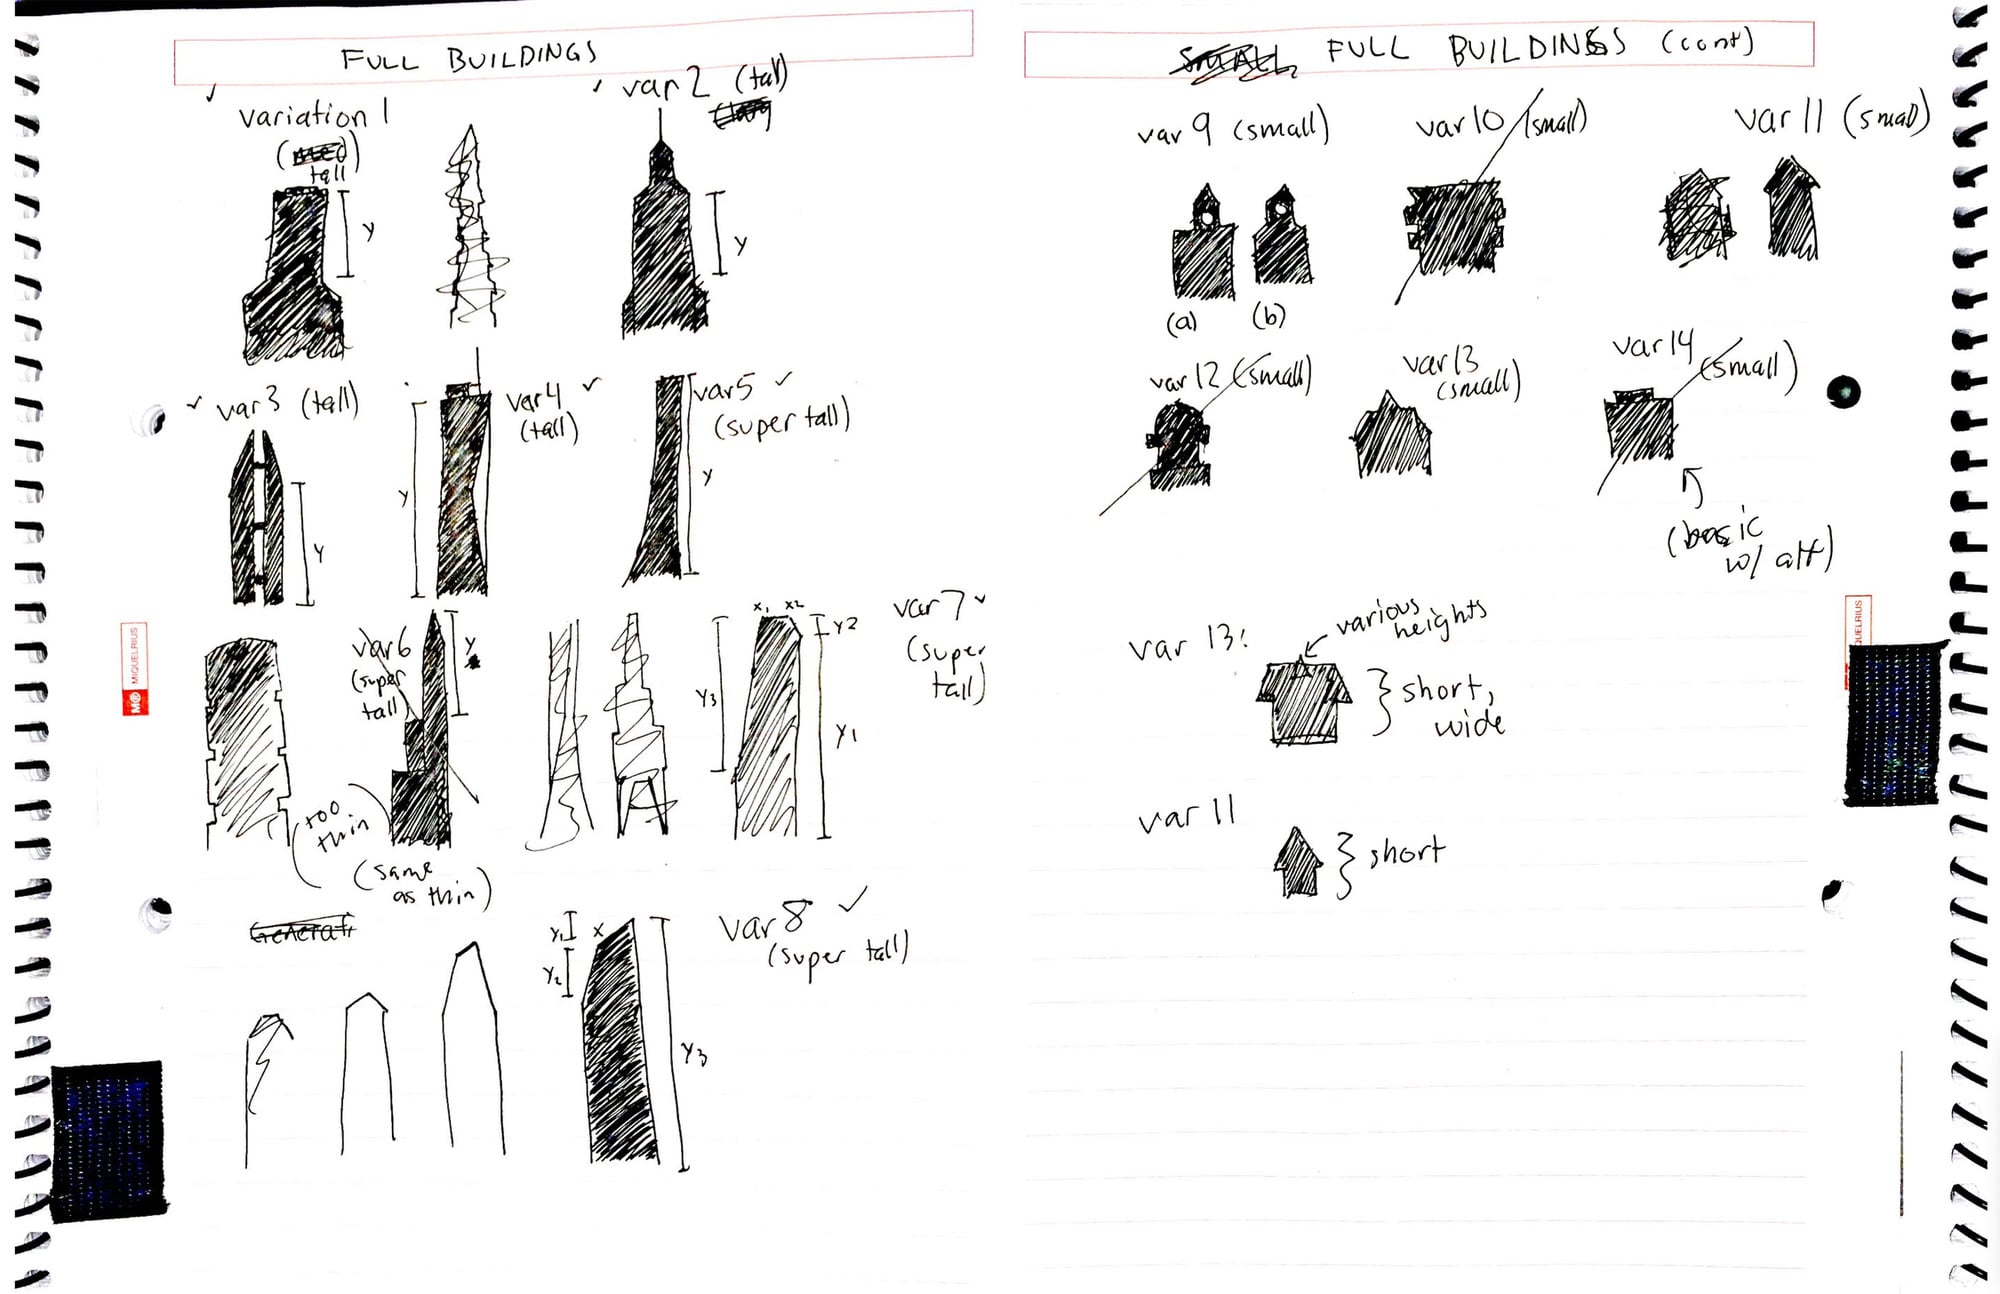 FULL BUILDINGS
variation 1
(med)
tall
y
var 2 (tall)
y
var 3 (tall)
y
var 4
(tall)
y
var 5
(super tall)
y
var 6
(super
tall)
y
too
thin
(same
as thin)
x1 x2
y2
y3
y1
var 7
(super
tall)
General
var 8
(super tall)
y1
x
y2
y3
MIQUELRIUS
SMALL FULL BUILDINGS (cont)
var 9 (small)
(a)
(b)
var 10 (small)
var 11 (small)
var 12 (small)
var 13
(small)
var 14 (small)
(basic
w/ alt)
var 13:
various
heights
short,
wide
var 11
short
QUELRIUS